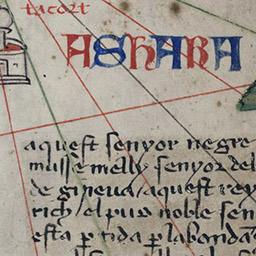 tacort
ASHARA
aquest senyor negre
musse melly senyor del
de gineua aquest rey
rich el pus noble sen
esta ꝑtida ꝑ labondā